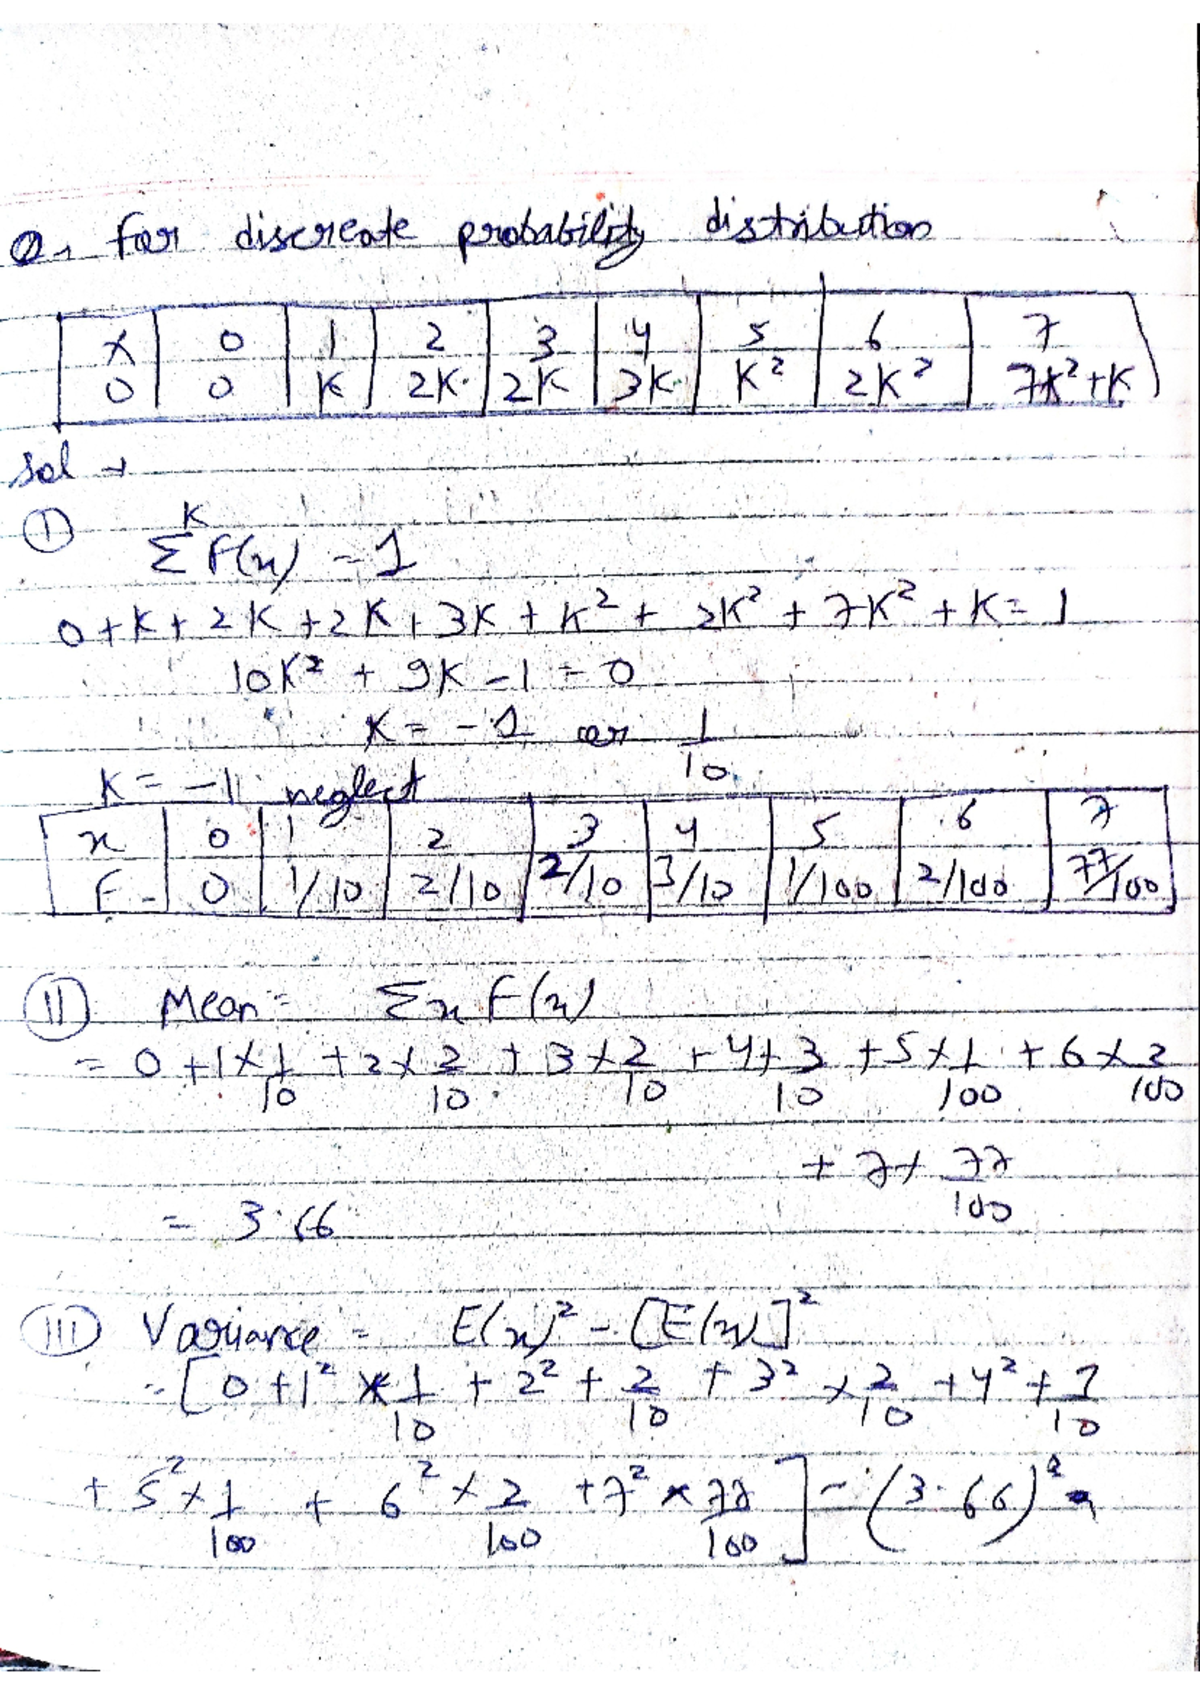 Q. for discreate probability distribution
x 0 1 2 3 4 5 6 7
0 0 K 2K 2K 3K K² 2K² 7K²+K
Sol →
I K
Σ F(x) = 1
0+K+2K+2K+3K+K²+2K²+7K²+K=1
10K² + 9K - 1 = 0
K = -1 or 1/10
K = -1 neglect
x 0 1 2 3 4 5 6 7
F 0 1/10 2/10 2/10 3/10 1/100 2/100 77/100
II Mean = Σx F(x)
= 0+1×1/10 + 2×2/10 + 3×2/10 + 4+3/10 + 5×1/100 + 6×2/100
+ 7× 77/100
= 3.66
III Variance = E(x)² - [E(x)]²
= [0+1² × 1/10 + 2² + 2/10 + 3² × 2/10 + 4² +  /10
+ 5² × 1/100 + 6² × 2/100 + 7² × 77/100] - (3.66)²